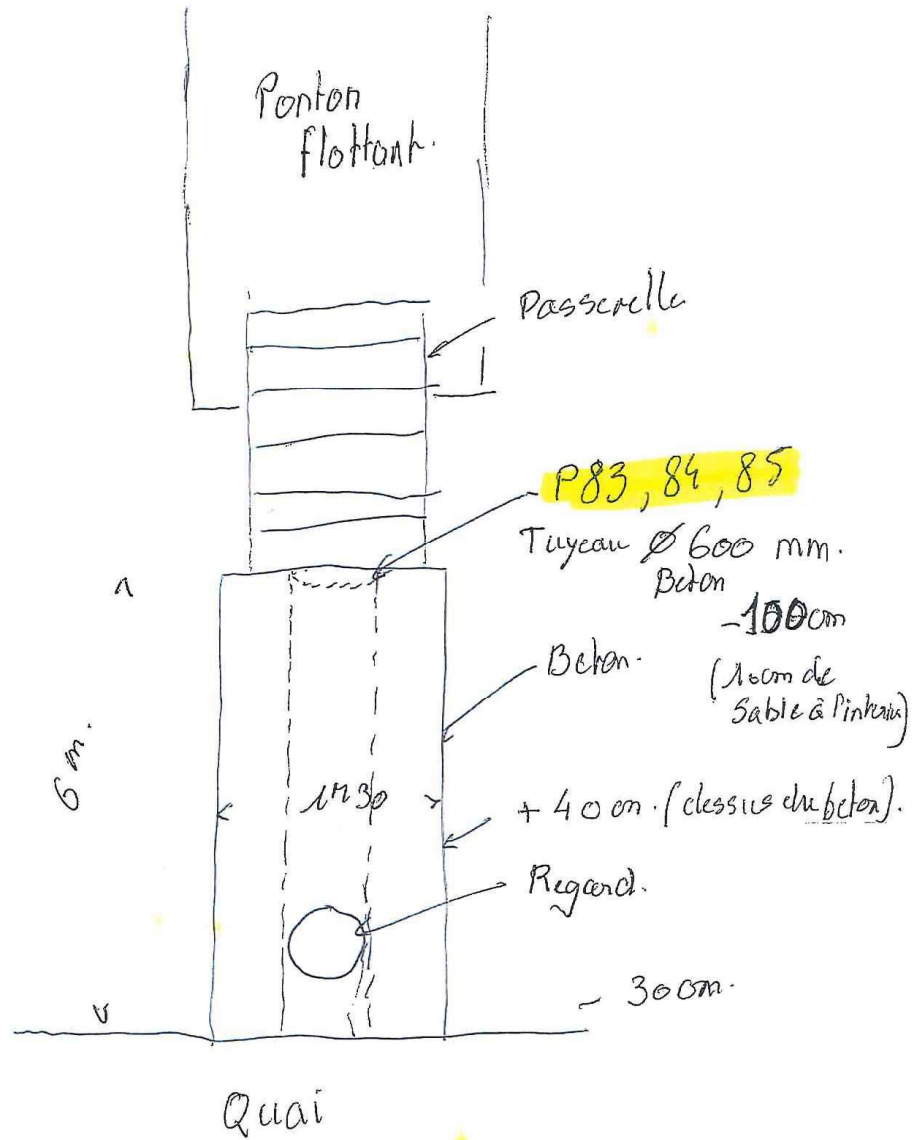 Ponton
flottant.
Passerelle
P83, 84, 85
Tuyeau Ø 600 mm.
Beton
-100cm
(10cm de
Sable à l'intérieur)
Beton.
6 m.
1m30
+ 40 cm. (dessus du beton).
Regard.
- 30cm.
Quai